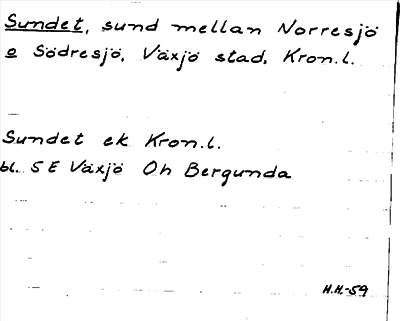 Sundet, sund mellan Norresjö
o Södresjö, Växjö stad, Kron.l.
Sundet ek Kron.l.
bl. 5 E Växjö Oh Bergunda
H.H.-59